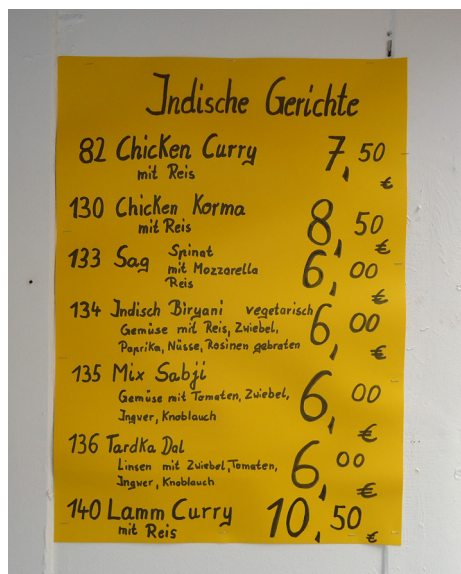 Indische Gerichte
82 Chicken Curry 7,50 €
mit Reis
130 Chicken Korma 8,50 €
mit Reis
133 Sag Spinat 6,00 €
mit Mozzarella
Reis
134 Indisch Biryani vegetarisch 6,00 €
Gemüse mit Reis, Zwiebel,
Paprika, Nüsse, Rosinen gebraten
135 Mix Sabji 6,00 €
Gemüse mit Tomaten, Zwiebel,
Ingver, Knoblauch
136 Tardka Dal 6,00 €
Linsen mit Zwiebel, Tomaten,
Ingver, Knoblauch
140 Lamm Curry 10,50 €
mit Reis